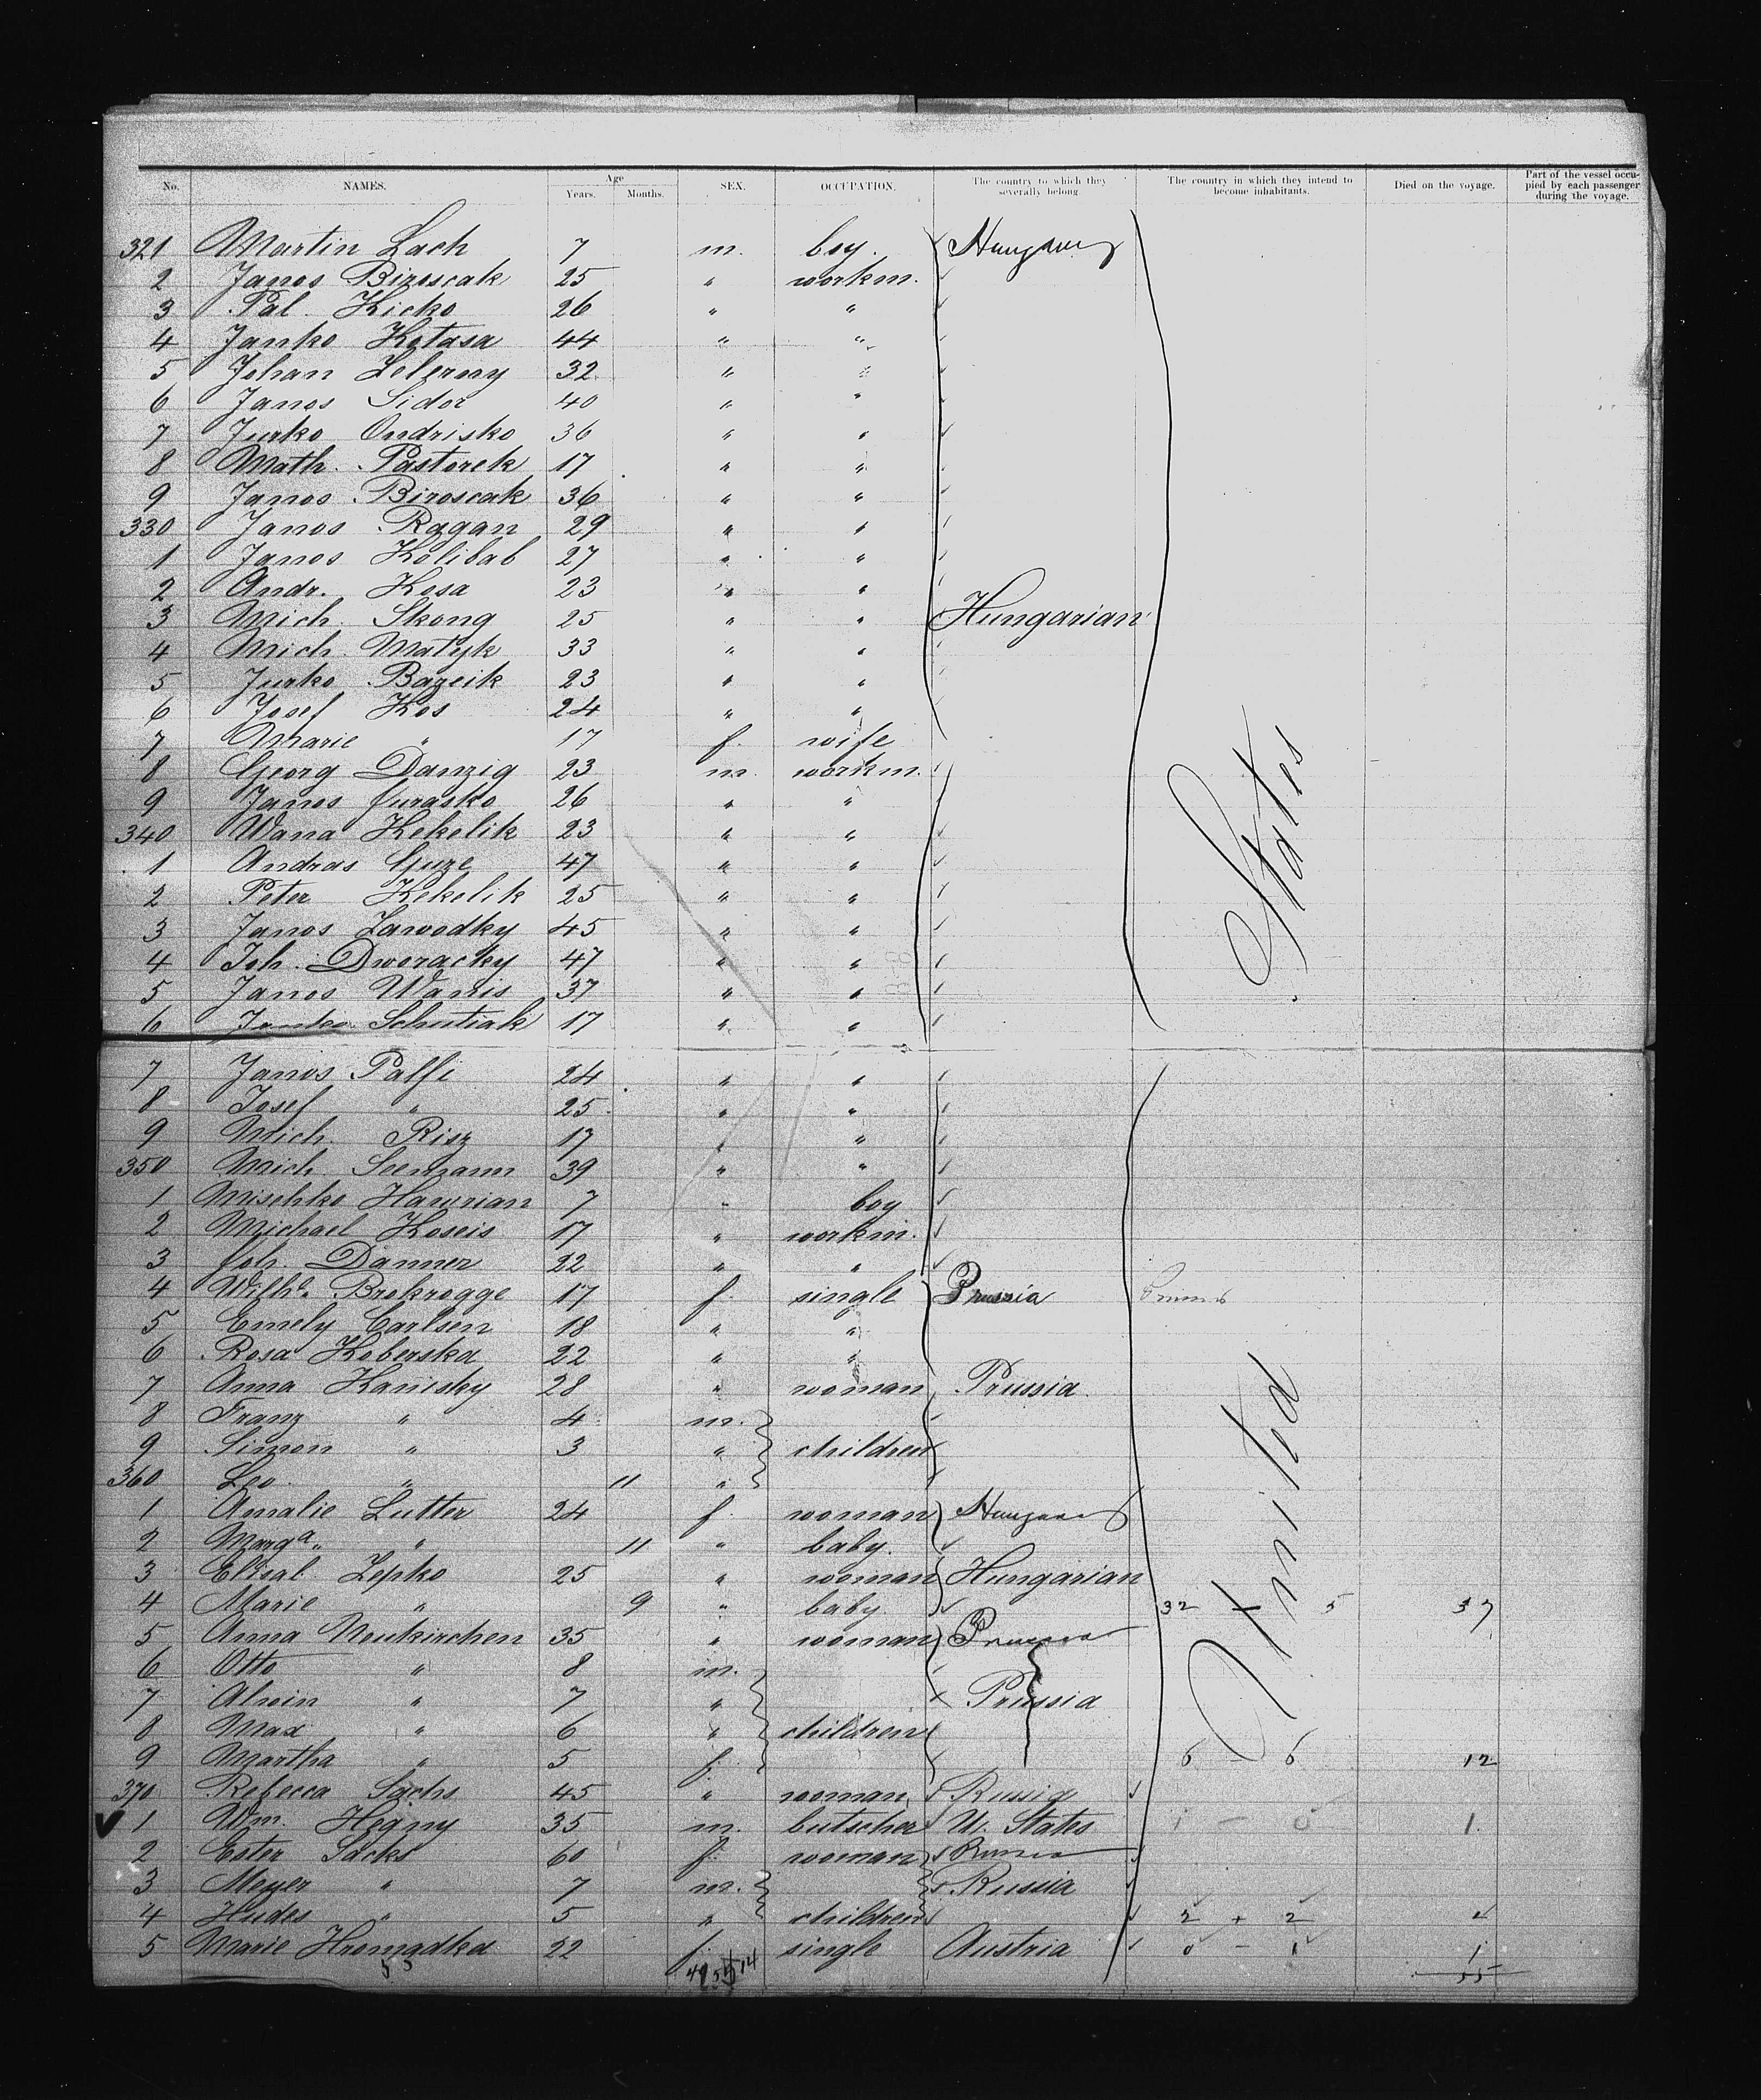 No. NAMES. Age Years. Months. SEX. OCCUPATION. The country to which they severally belong The country in which they intend to become inhabitants. Died on the voyage. Part of the vessel occupied by each passenger during the voyage.
321 Martin Lach 7 m. boy. Hungary
2 Janos Biroscak 25 " workm.
3 Pal. Hicko 26 " "
4 Janko Kotasa 44 " "
5 Johan Zelezny 32 " "
6 Janos Sidor 40 " "
7 Jurko Ondrisko 36 " "
8 Math. Pastorek 17 " "
9 Janos Biroscak 36 " "
330 Janos Ragan 29 " "
1 Janos Kolibab 27 " "
2 Andr. Kosa 23 " "
3 Mich. Skong 25 " " Hungarian
4 Mich. Matyk 33 " "
5 Jurko Bazcik 23 " "
6 Josef Kos 24 " "
7 Marie " 17 f. wife
8 Georg Danzig 23 m. workm.
9 Janos Jurasko 26 " "
340 Wana Kekelik 23 " "
1 Andras Guze 47 " "
2 Peter Kekelik 25 " "
3 Janos Zawodky 45 " "
4 Joh. Dworacky 47 " "
5 Janos Wanis 37 " "
6 Janko Schutiak 17 " "
7 Janos Palfi 24 " "
8 Josef " 25 " "
9 Mich. Risz 17 " "
350 Mich. Seemann 39 " "
1 Mischko Hawrian 7 " boy
2 Michael Koseis 17 " workm.
3 Joh. Danner 22 " "
4 Wilhe. Brokrogge 17 f. single Prussia
5 Emely Carlsen 18 " "
6 Rosa Koberska 22 " "
7 Anna Kanisky 28 " woman Prussia.
8 Franz " 4 m.
9 Simon " 3 " children
360 Leo " 11 "
1 Amalie Lutter 24 f. woman Hungary
2 Marga. " 11 " baby.
3 Elisab. Zepko 25 " woman Hungarian
4 Marie " 9 " baby 32 + 5 37
5 Anna Neukirchen 35 " woman Prussia
6 Otto " 8 m.
7 Alwin " 7 " Prussia
8 Max " 6 " children
9 Martha " 5 f. 6 - 6 12
370 Rebecca Sachs 45 " woman Russia
1 Wm. Hegny 35 m. butscher U. States 1 - 0 1.
2 Ester Sacks 60 f. woman Russia
3 Meyer " 7 m. Russia
4 Hudes " 5 " children 2 + 2 4
5 Marie Hromadka 22 f. single Austria 0 - 1 1
55
United States